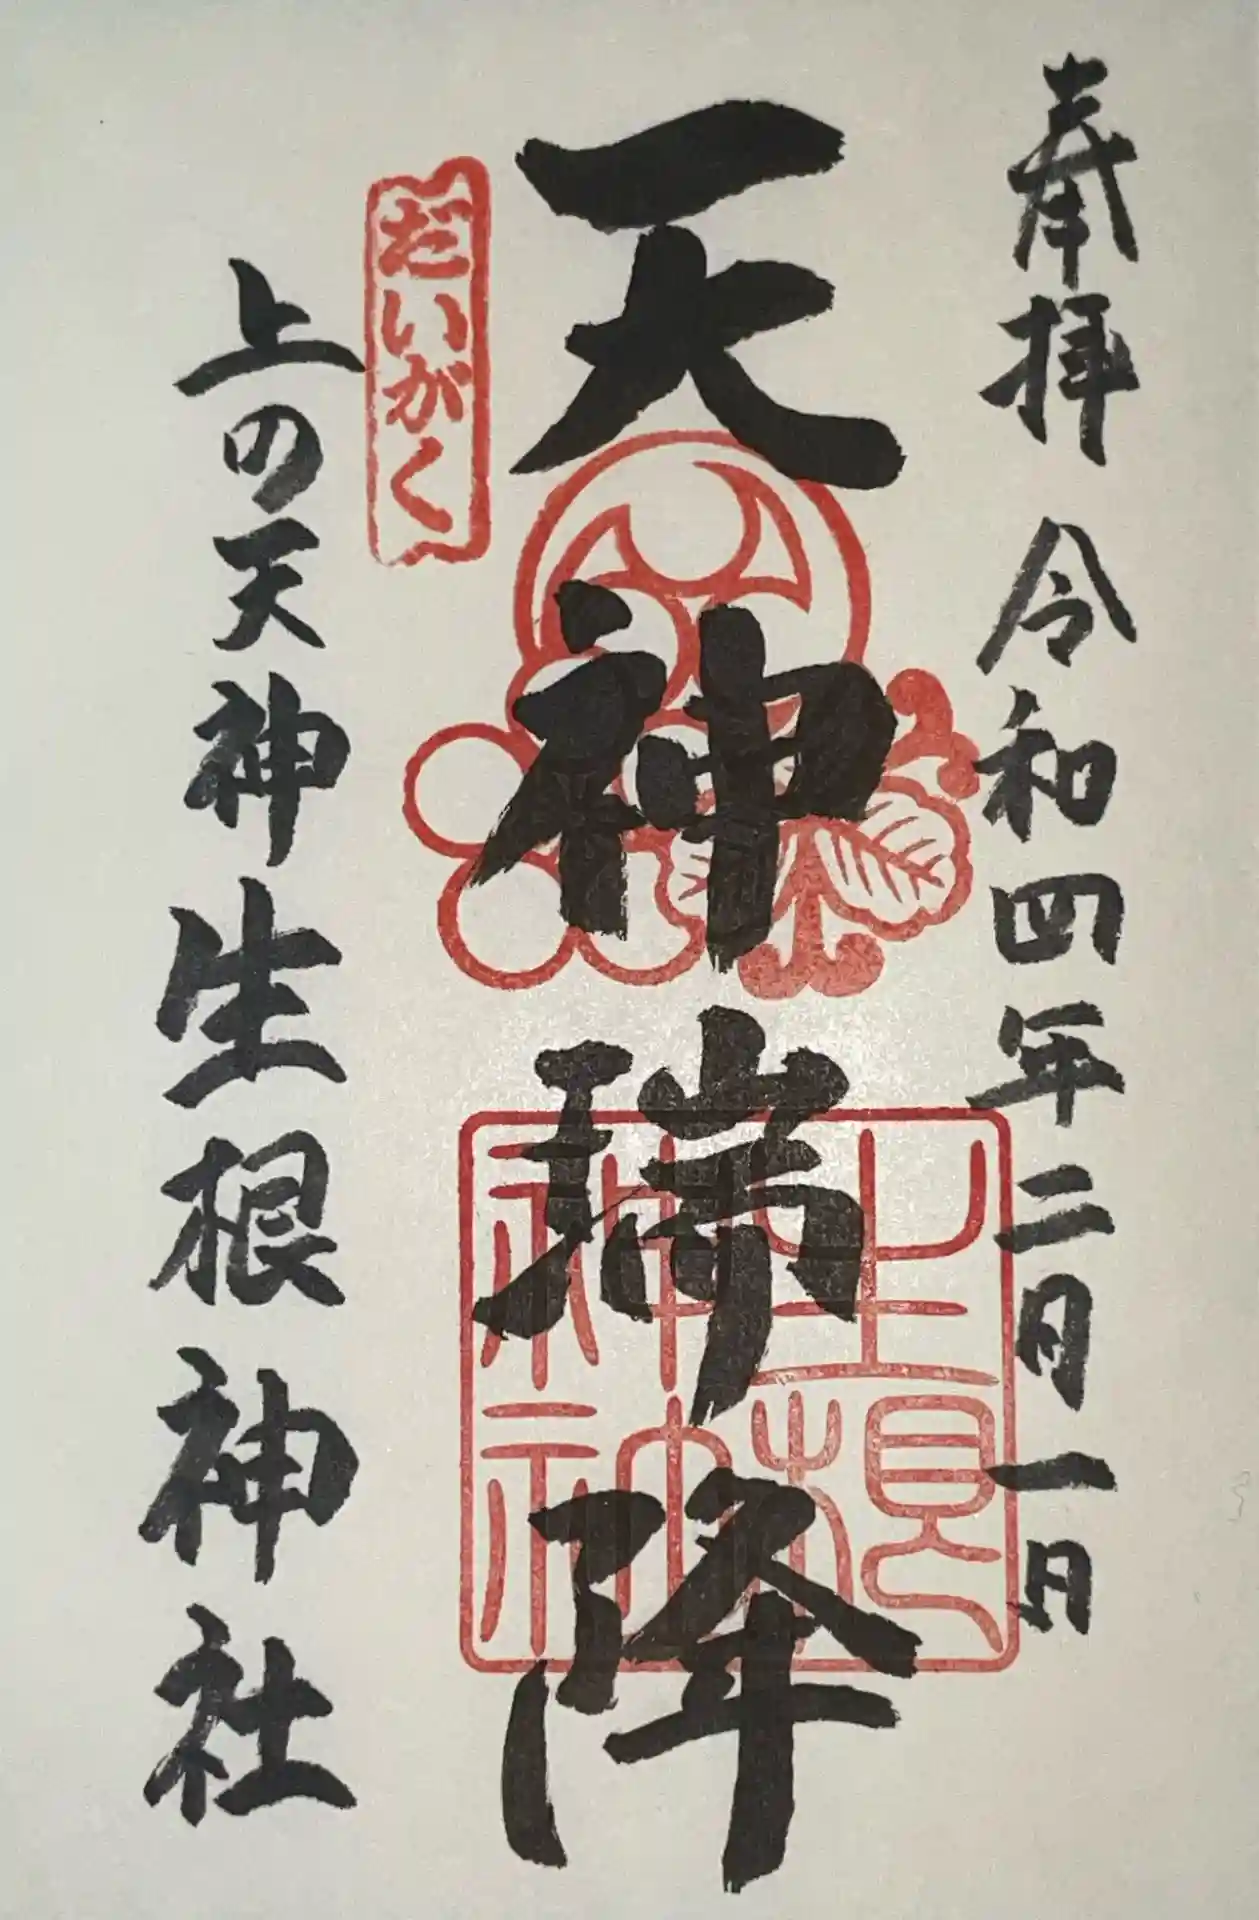 奉拝 令和四年二月一日
天神瑞降
だいがく
上の天神生根神社
生根
神社